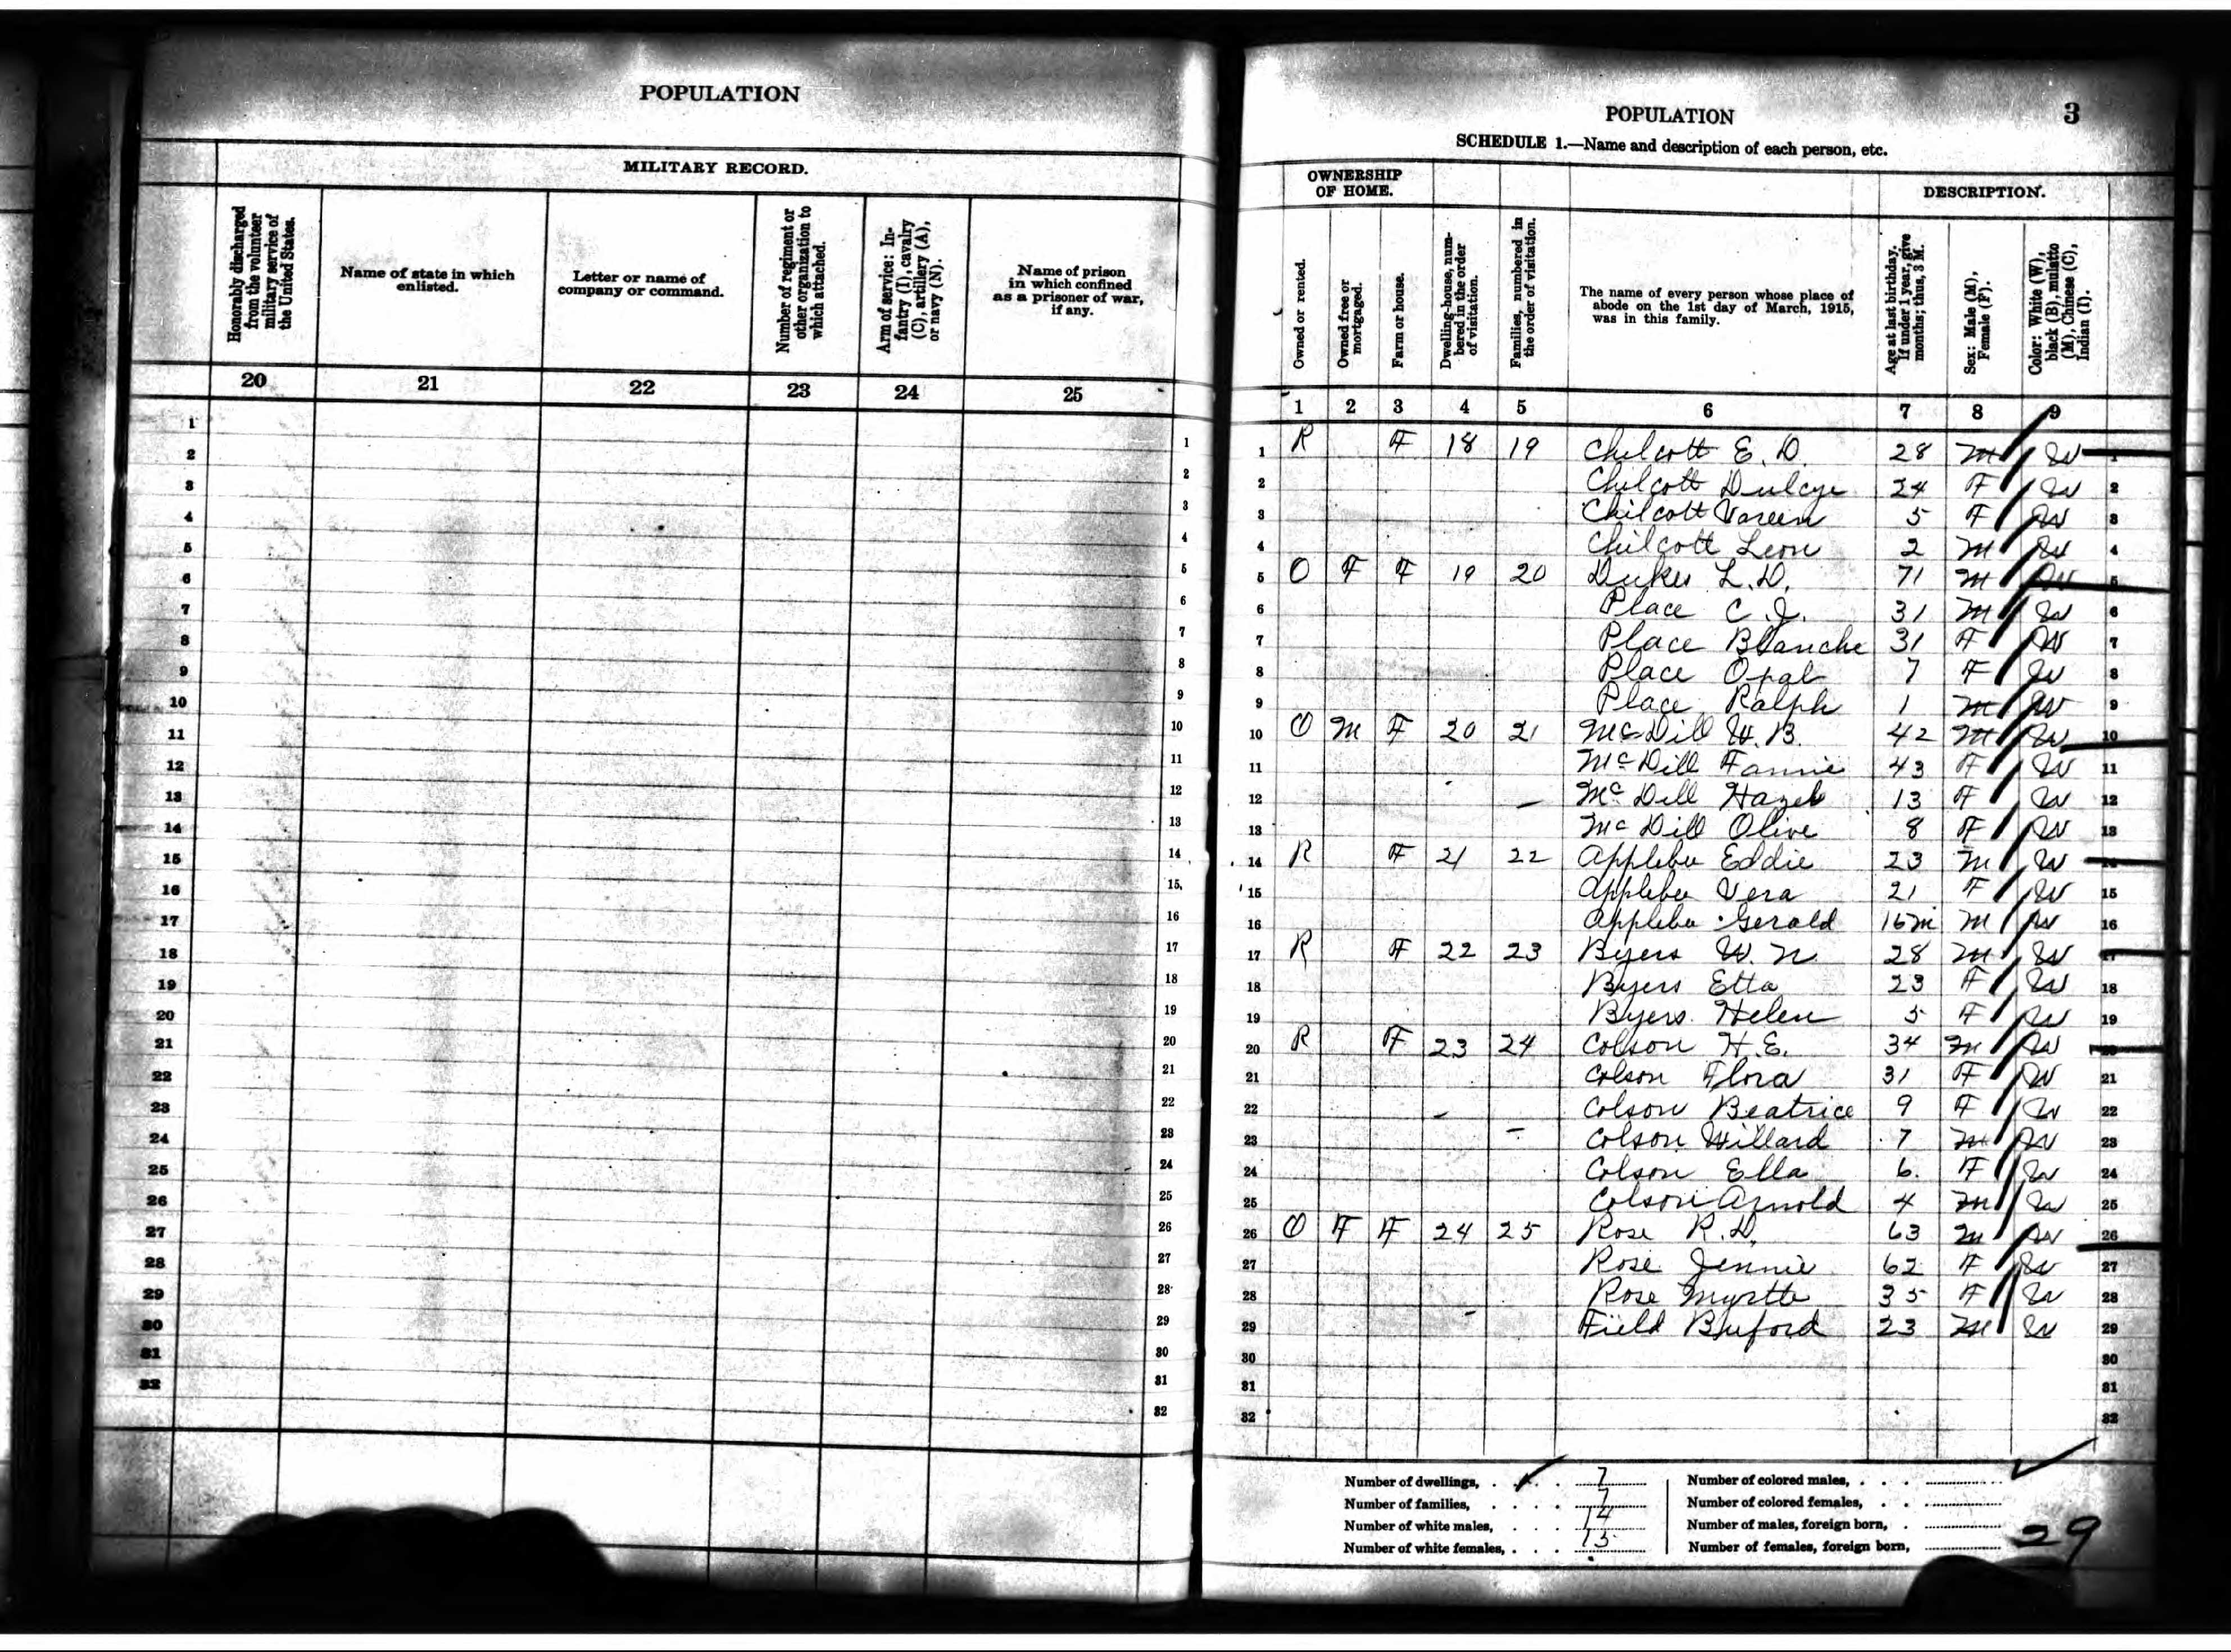 POPULATION
MILITARY RECORD.
Honorably discharged from the volunteer military service of the United States.
Name of state in which enlisted.
Letter or name of company or command.
Number of regiment or other organization to which attached.
Arm of service: Infantry (I), cavalry (C), artillery (A), or navy (N).
Name of prison in which confined as a prisoner of war, if any.
20 21 22 23 24 25
1 1
2 2
3 3
4 4
5 5
6 6
7 7
8 8
9 9
10 10
11 11
12 12
13 13
14 14
15 15
16 16
17 17
18 18
19 19
20 20
21 21
22 22
23 23
24 24
25 25
26 26
27 27
28 28
29 29
30 30
31 31
32 32
POPULATION 3
SCHEDULE 1.—Name and description of each person, etc.
OWNERSHIP OF HOME.
DESCRIPTION.
Owned or rented.
Owned free or mortgaged.
Farm or house.
Dwelling-house, numbered in the order of visitation.
Families, numbered in the order of visitation.
The name of every person whose place of abode on the 1st day of March, 1915, was in this family.
Age at last birthday. If under 1 year, give months; thus, 3 M.
Sex: Male (M), Female (F).
Color: White (W), black (B), mulatto (M), Chinese (C), Indian (I).
1 2 3 4 5 6 7 8 9
1 R F 18 19 Chilcott E. D. 28 M W 1
2 Chilcott Dulcye 24 F W 2
3 Chilcott Vareen 5 F W 3
4 Chilcott Leon 2 M W 4
5 O F F 19 20 Dukes L. D. 71 M W 5
6 Place C. J. 31 M W 6
7 Place Blanche 31 F W 7
8 Place Opal 7 F W 8
9 Place Ralph 1 M W 9
10 O M F 20 21 McDill W. B. 42 M W 10
11 McDill Fannie 43 F W 11
12 McDill Hazel 13 F W 12
13 McDill Olive 8 F W 13
14 R F 21 22 Applebee Eddie 23 M W
15 Applebee Vera 21 F W 15
16 Applebee Gerald 16m M W 16
17 R F 22 23 Byers W. N 28 M W
18 Byers Etta 23 F W 18
19 Byers Helen 5 F W 19
20 R F 23 24 Colson H. E. 34 M W
21 Colson Flora 31 F W 21
22 Colson Beatrice 9 F W 22
23 Colson Willard 7 M W 23
24 Colson Ella 6 F W 24
25 Colson Arnold 4 M W 25
26 O F F 24 25 Rose R. D. 63 M W 26
27 Rose Jennie 62 F W 27
28 Rose Myrtle 35 F W 28
29 Field Buford 23 M W 29
30 30
31 31
32 32
Number of dwellings, 7 Number of colored males,
Number of families, 7 Number of colored females,
Number of white males, 14 Number of males, foreign born,
Number of white females, 15 Number of females, foreign born,
29